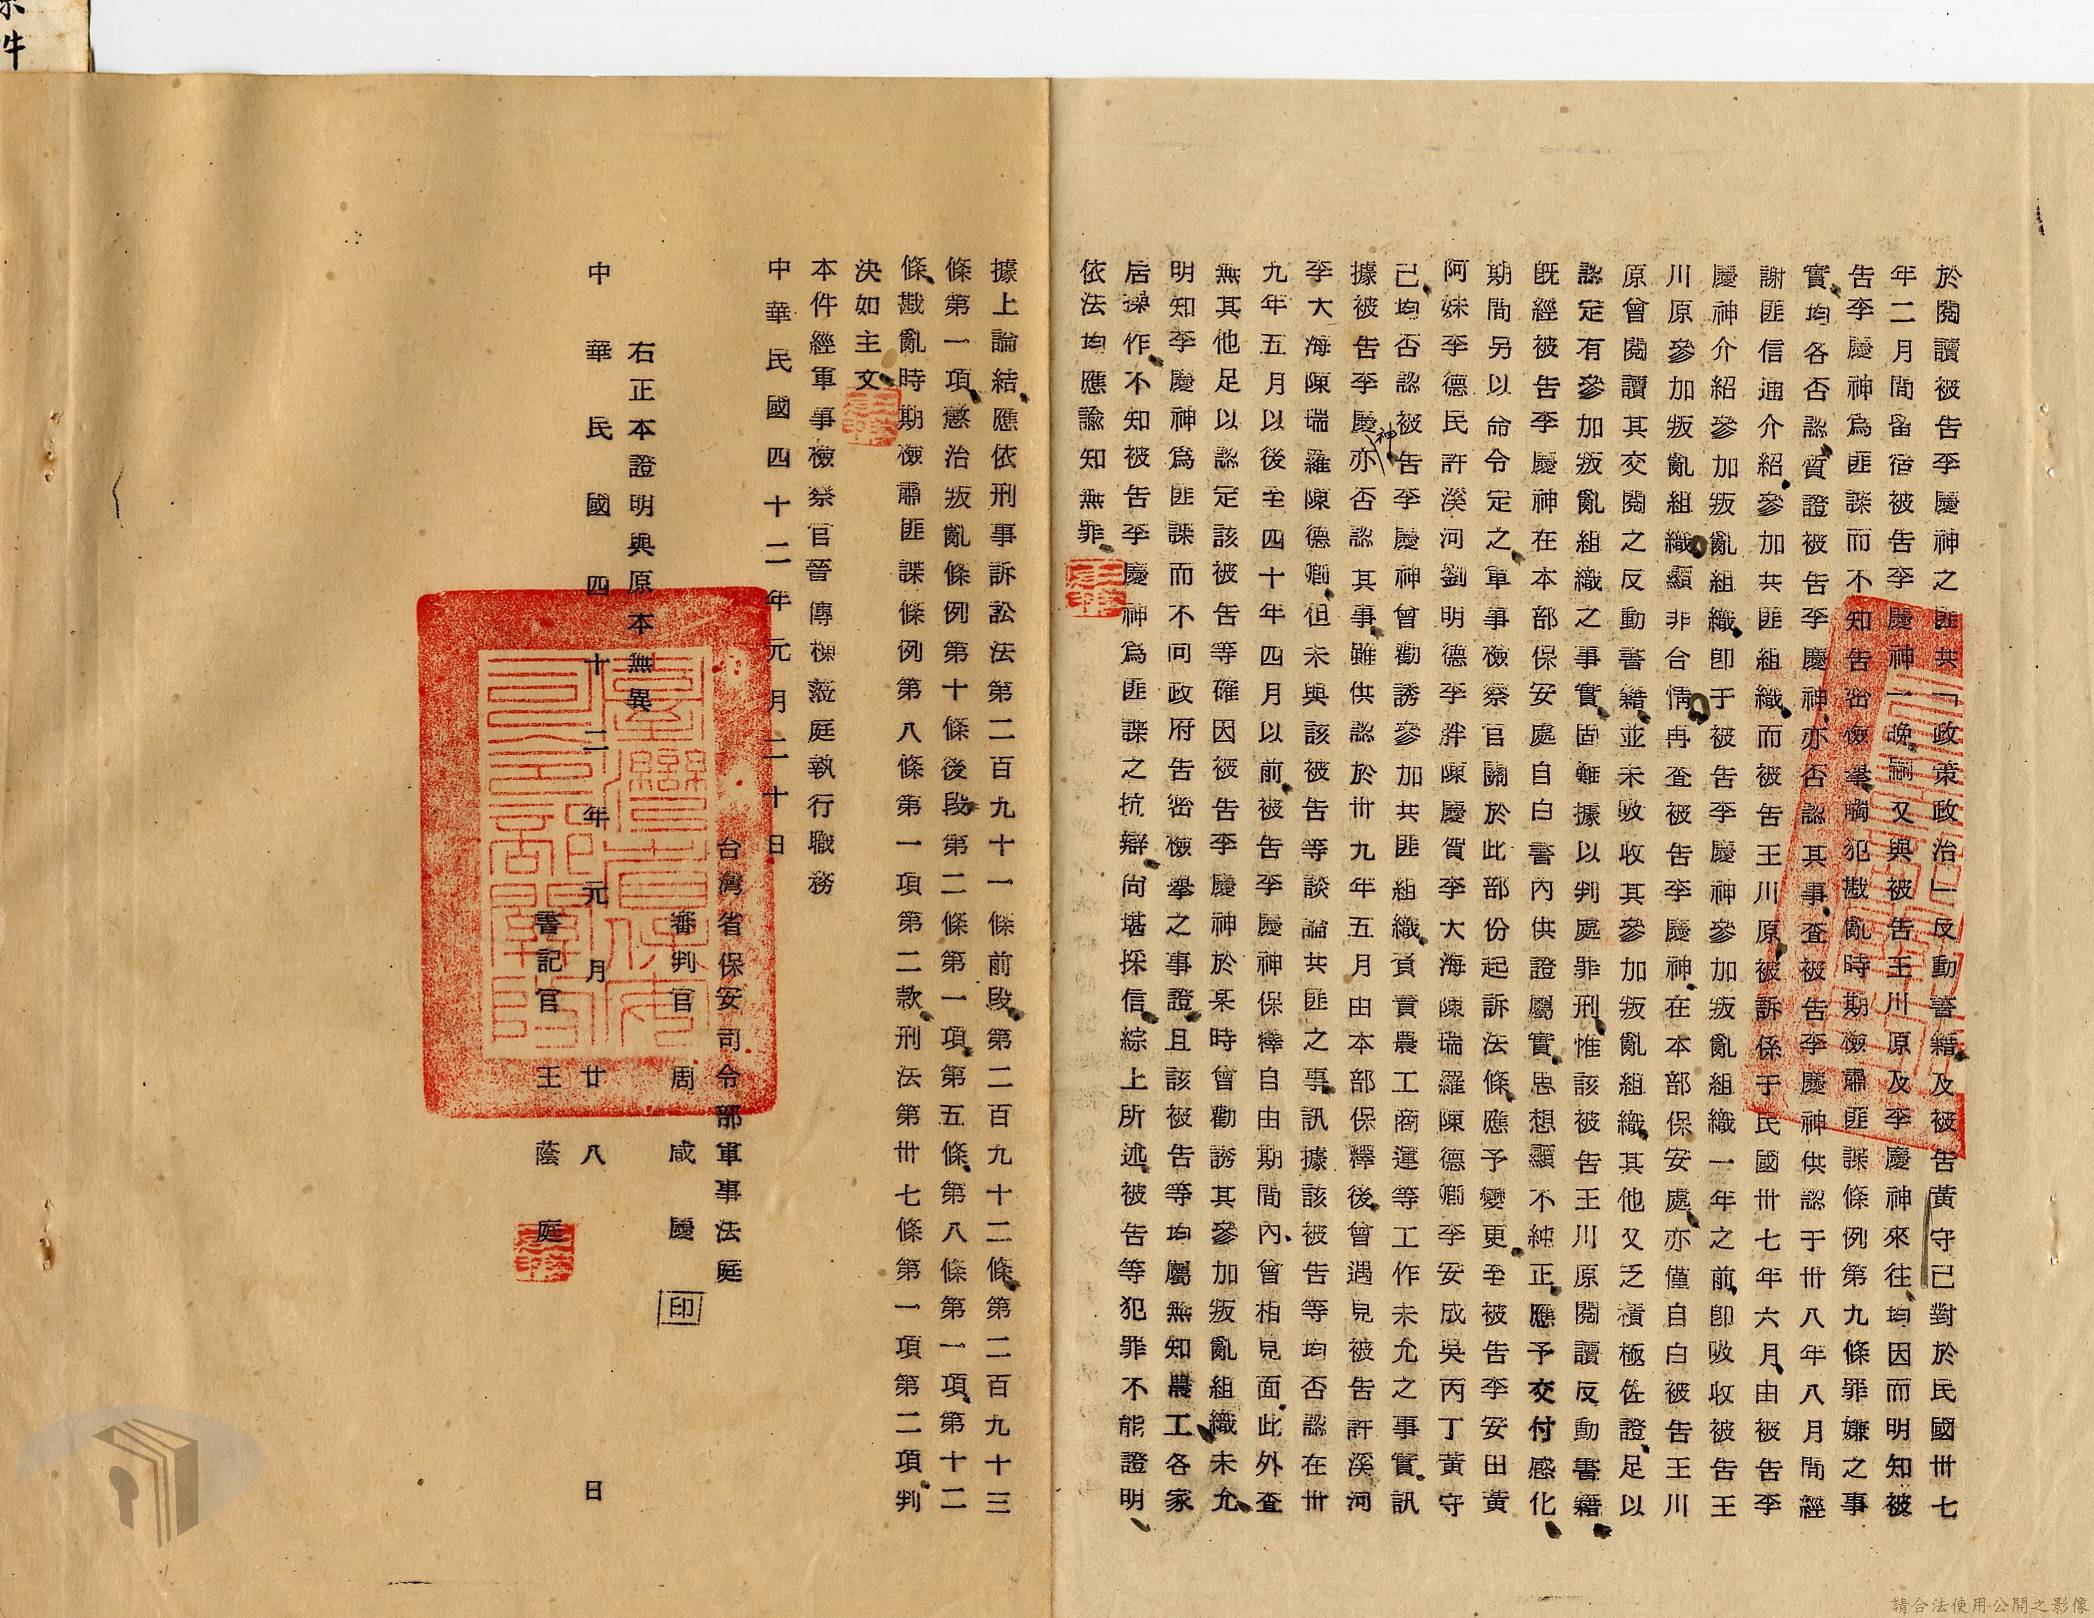 於閱讀被告李慶神之匪共「政策政治」反動書籍及被告黃守己對於民國卅七
年二月間留宿被告李慶神一晚嗣又與被告王川原及李慶神來往均因而明知被
告李慶神為匪諜而不知告密檢舉觸犯戡亂時期檢肅匪諜條例第九條罪嫌之事
實均各否認質證被告李慶神亦否認其事查被告李慶神供認于卅八年八月間經
謝匪信通介紹參加共匪組織而被告王川原被訴係于民國卅七年六月由被告李
慶神介紹參加叛亂組織即于被告李慶神參加叛亂組織一年之前即吸收被告王
川原參加叛亂組織顯非合情再查被告李慶神在本部保安處亦僅自白被告王川
原曾閱讀其交閱之反動書籍並未吸收其參加叛亂組織其他又乏積極佐證足以
認定有參加叛亂組織之事實固難據以判處罪刑惟該被告王川原閱讀反動書籍
既經被告李慶神在本部保安處自白書內供證屬實思想顯不純正應予交付感化
期間另以命令定之軍事檢察官關於此部份起訴法條應予變更至被告李安田黃
阿妹李德民許溪河劉明德李胖陳慶賀李大海陳瑞羅陳德卿李安成吳丙丁黃守
己均否認被告李慶神曾勸誘參加共匪組織負責農工商運等工作未允之事實訊
據被告李慶神亦否認其事雖供認於卅九年五月由本部保釋後曾遇見被告許溪河
李大海陳瑞羅陳德卿但未與該被告等談論共匪之事訊據該被告等均否認在卅
九年五月以後至四十年四月以前被告李慶神保釋自由期間內曾相見面此外查
無其他足以認定該被告等確因被告李慶神於某時曾勸誘其參加叛亂組織未允
明知李慶神為匪諜而不向政府告密檢舉之事證且該被告等均屬無知農工各家
居操作不知被告李慶神為匪諜之抗辯尚堪採信綜上所述被告等犯罪不能證明
依法均應諭知無罪
據上論結應依刑事訴訟法第二百九十一條前段第二百九十二條第二百九十三
條第一項懲治叛亂條例第十條後段第二條第一項第五條第八條第一項第十二
條戡亂時期檢肅匪諜條例第八條第一項第二款刑法第卅七條第一項第二項判
決如主文
本件經軍事檢察官晉傳棟蒞庭執行職務
中華民國四十二年元月二十日
台灣省保安司令部軍事法庭
審判官周咸慶 印
右正本證明與原本無異
中華民國四十二年元月廿八日
書記官王蔭庭
請合法使用公開之影像